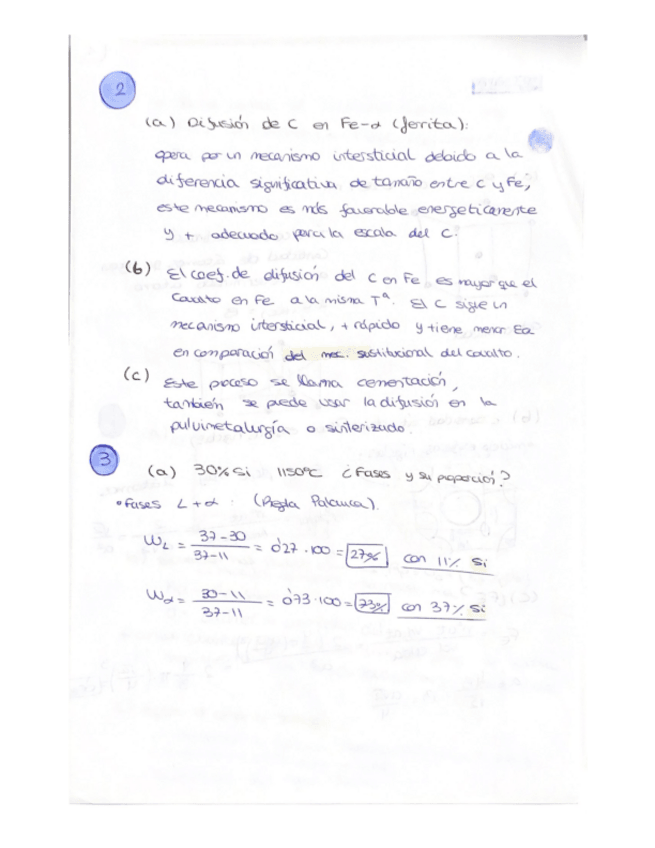 2
(a) Difusión de C en Fe-α (ferrita):
opera por un mecanismo intersticial debido a la
diferencia significativa de tamaño entre C y Fe;
este mecanismo es más favorable energeticamente
y + adecuado para la escala del C.
(b) El coef. de difusión del C en Fe es mayor que el
Cavalto en Fe a la misma Tª. El C sigue un
mecanismo intersticial, + rápido y tiene menor Ea
en comparación del mec. sustitucional del cavalto.
(c) Este proceso se llama cementación,
también se puede usar la difusión en la
pulvimetalurgía o sinterizado.
3
(a) 30% Si 1150ºC ¿Fases y su proporción?
• Fases L + α : (Regla Palanca).
WL = 37-30 / 37-11 = 0'27 · 100 = 27% con 11% Si
Wα = 30-11 / 37-11 = 0'73 · 100 = 73% con 37% Si